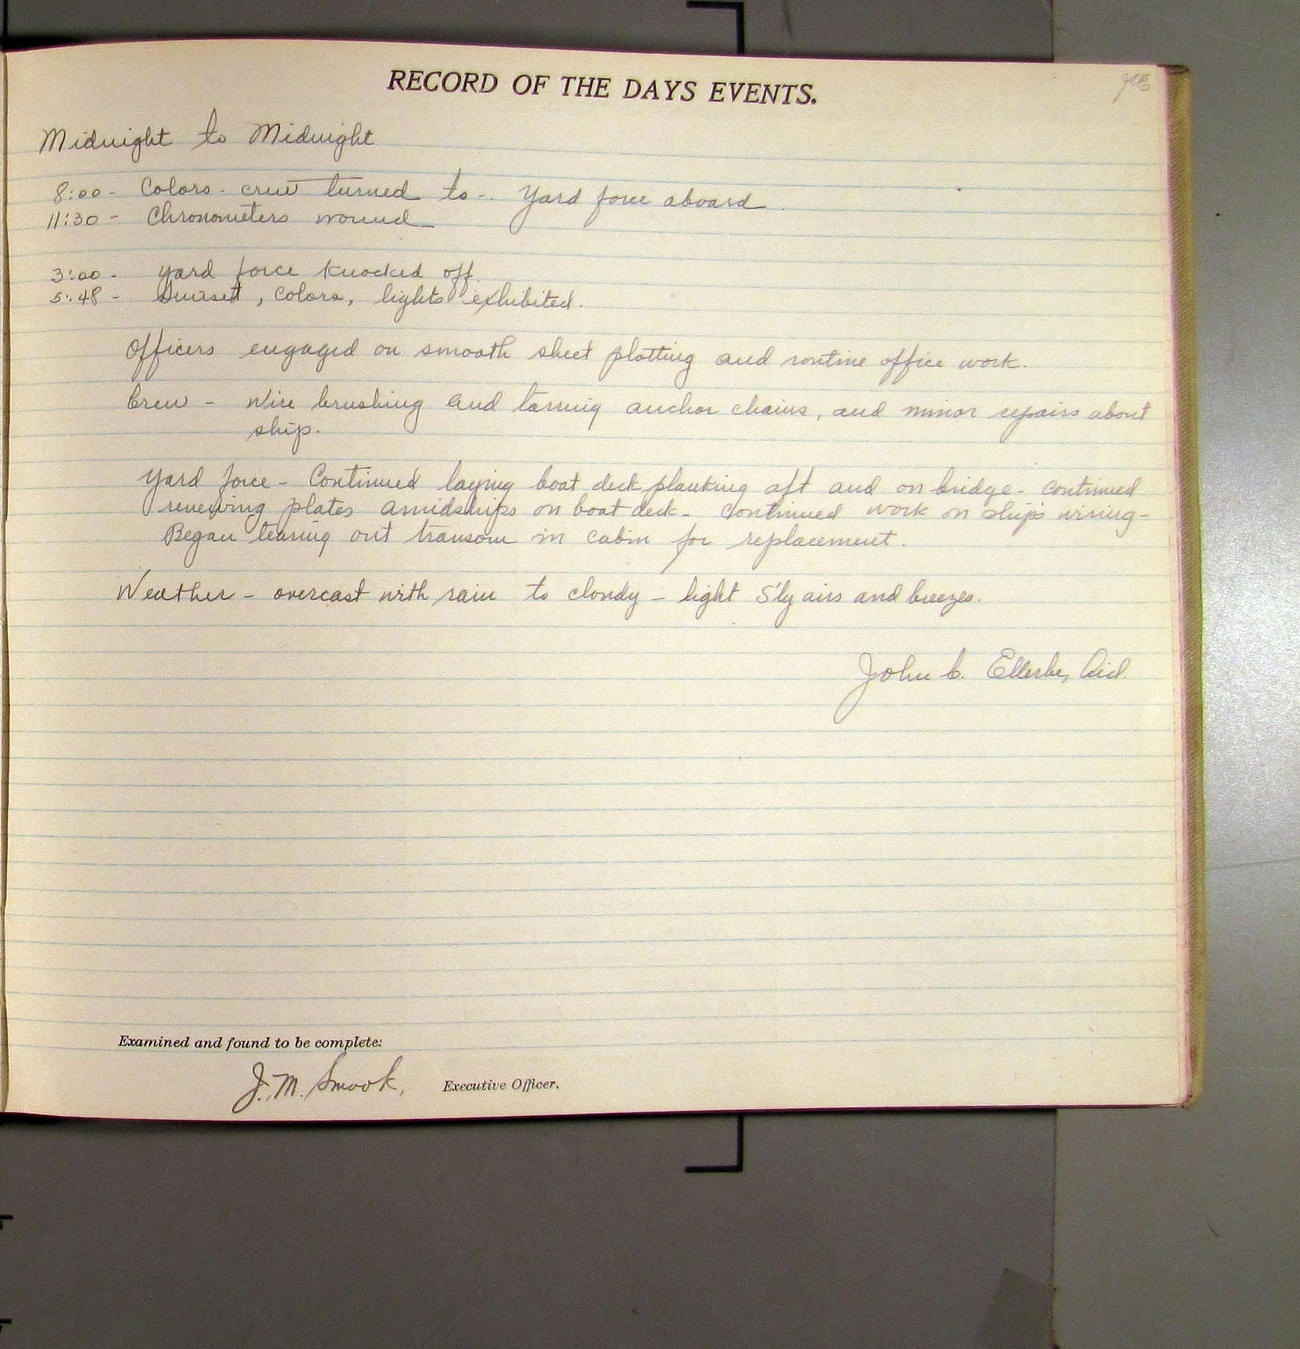 RECORD OF THE DAYS EVENTS.
Midnight to Midnight
8:00 - Colors - crew turned to - Yard force aboard
11:30 - Chronometers wound
3:00 - Yard force knocked off.
5:48 - Sunset, colors, lights exhibited.
Officers engaged on smooth sheet plotting and routine office work.
Crew - Wire brushing and tarring anchor chains, and minor repairs about
ship.
Yard force - Continued laying boat deck planking aft and on bridge - continued
renewing plates amidships on boat deck - Continued work on ship's wiring -
Began tearing out transom in cabin for replacement.
Weather - overcast with rain to cloudy - light S'ly airs and breezes.
John C. Ellerbe, Aid.
Examined and found to be complete:
J. M. Smook, Executive Officer.